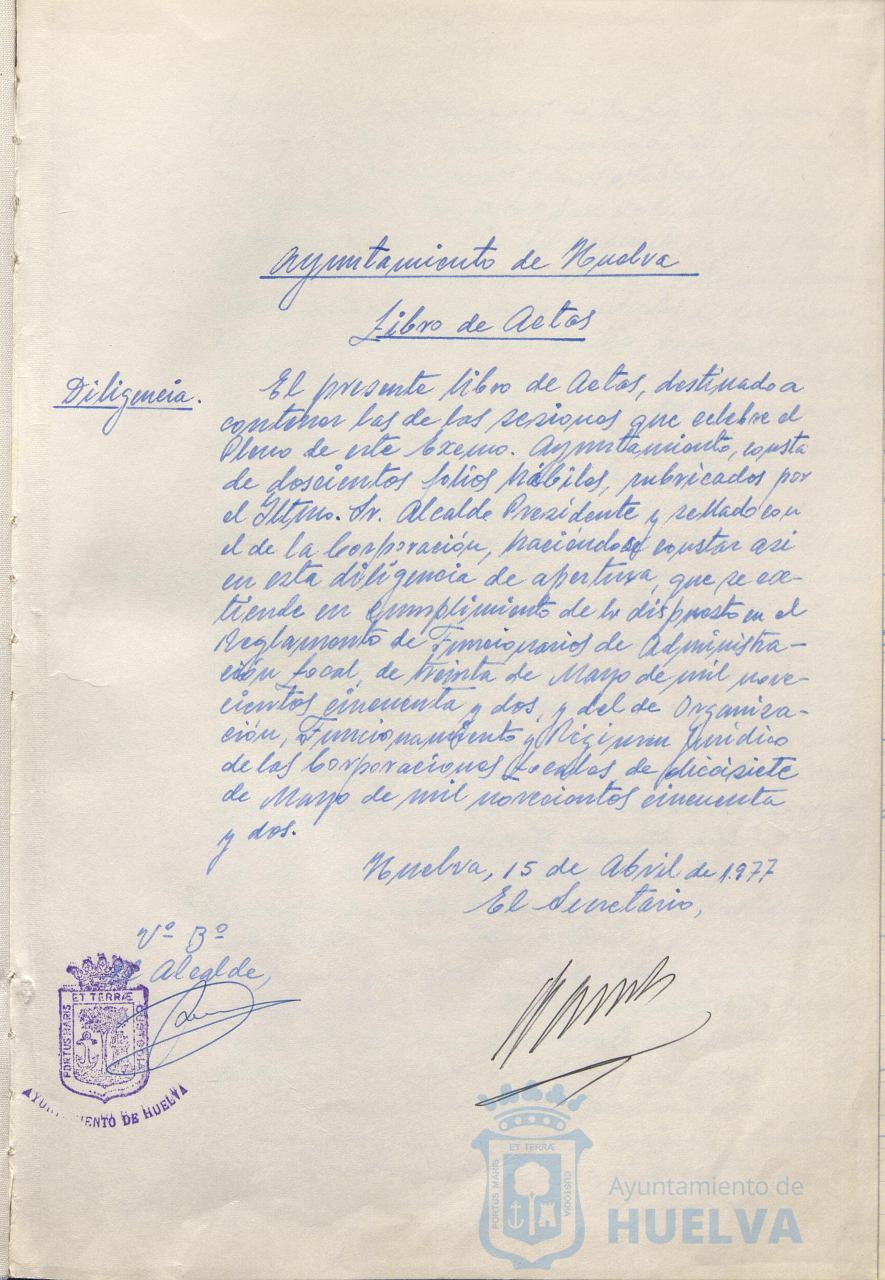 Ayuntamiento de Huelva
Libro de Actas
Diligencia.
El presente libro de Actas, destinado a
contener las de las sesiones que celebre el
Pleno de este Excmo. Ayuntamiento, consta
de doscientos folios hábiles, rubricados por
el Iltmo. Sr. Alcalde Presidente y sellado con
el de la Corporación, haciéndose constar asi
en esta diligencia de apertura, que se ex-
tiende en cumplimiento de lo dispuesto en el
Reglamento de Funcionarios de Administra-
ción Local, de treinta de Mayo de mil nove-
cientos cincuenta y dos, y del de Organiza-
ción, Funcionamiento y Régimen Jurídico
de las Corporaciones Locales de diecisiete
de Mayo de mil novecientos cincuenta
y dos.
Huelva, 15 de Abril de 1.977
El Secretario,
Vº Bº
El Alcalde,
PORTUS MARIS
ET TERRÆ
CUSTODIA
AYUNTAMIENTO DE HUELVA
PORTUS MARIS
ET TERRÆ
CUSTODIA
Ayuntamiento de
HUELVA